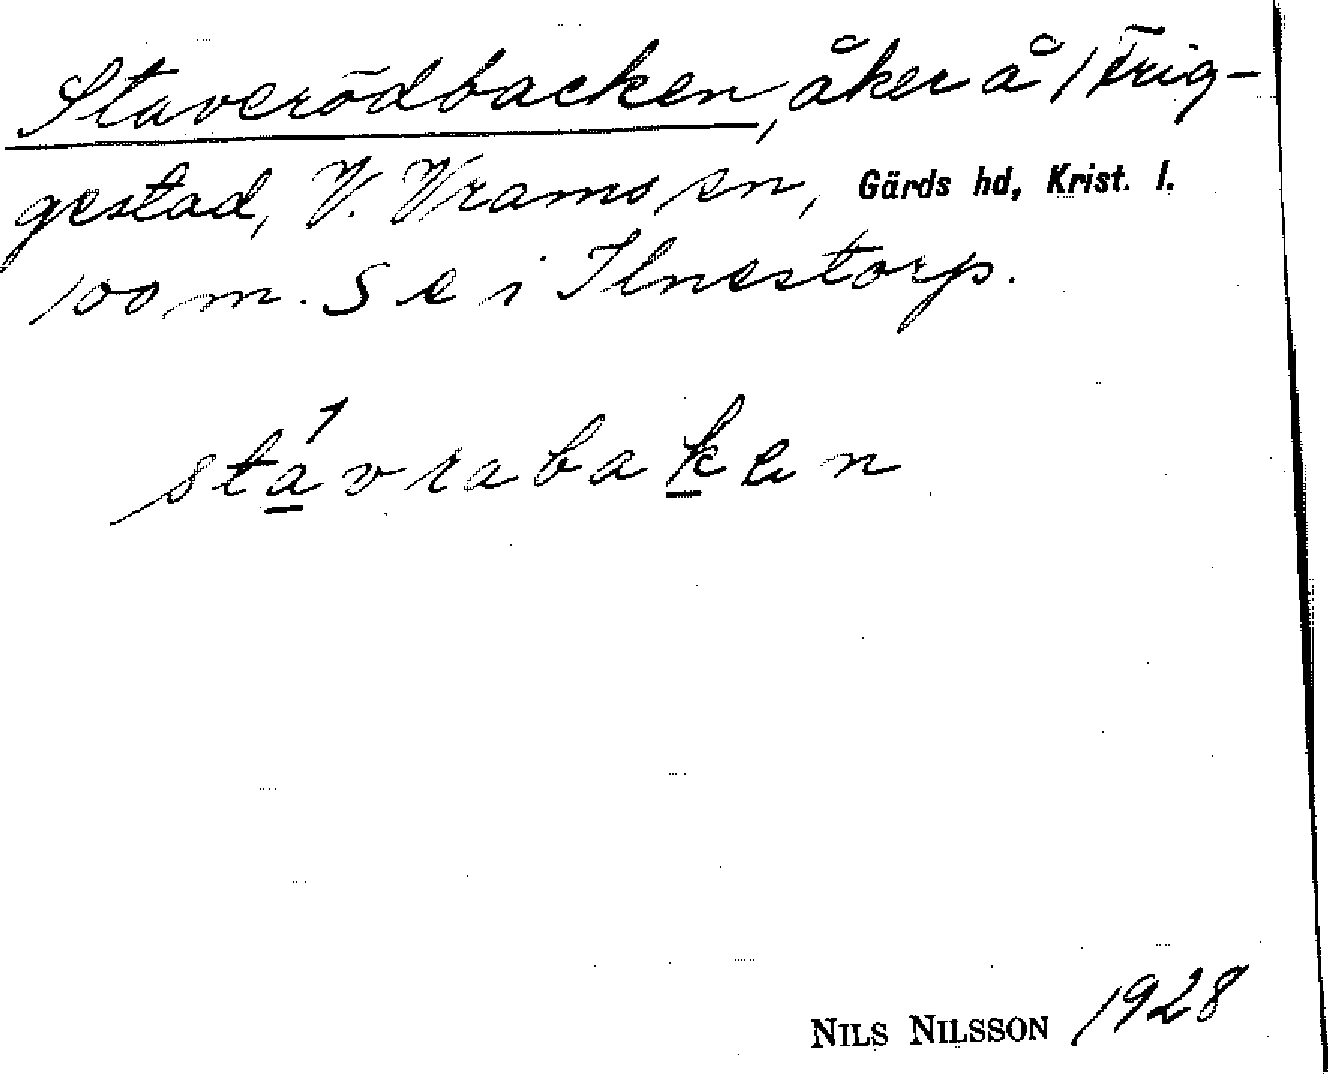 Staverödbacken, åker å 1 Trig-
gestad, V. Vrams sn, Gärds hd, Krist. l.
100 m. S e i Ilnestorp.
stávrabaken
NILS NILSSON 1928